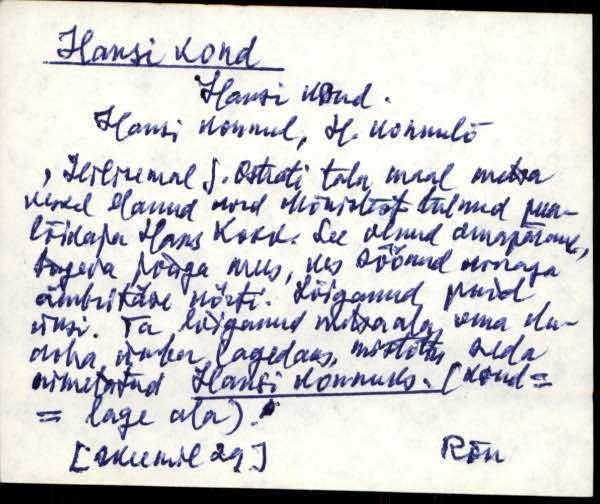 Hansi kond
Hansi kond.
Hansi konnul, H. konnulõ
, Hilisemal J. Ostrati talu maal metsa
keskel elanud noid Mõnistest tulnud puu-
lõikaja Hans Kokk. See olnud omapärane,
tugeva jõuga mees, kes söönud korraga
ämbritäve körti. Lõiganud puid
üksi. Ta lõiganud metsaalg oma elu-
koha ümber lagedaks, mistõttu seda
nimetatud Hansi konnuks. (kond=
= lage ala).
Rõu